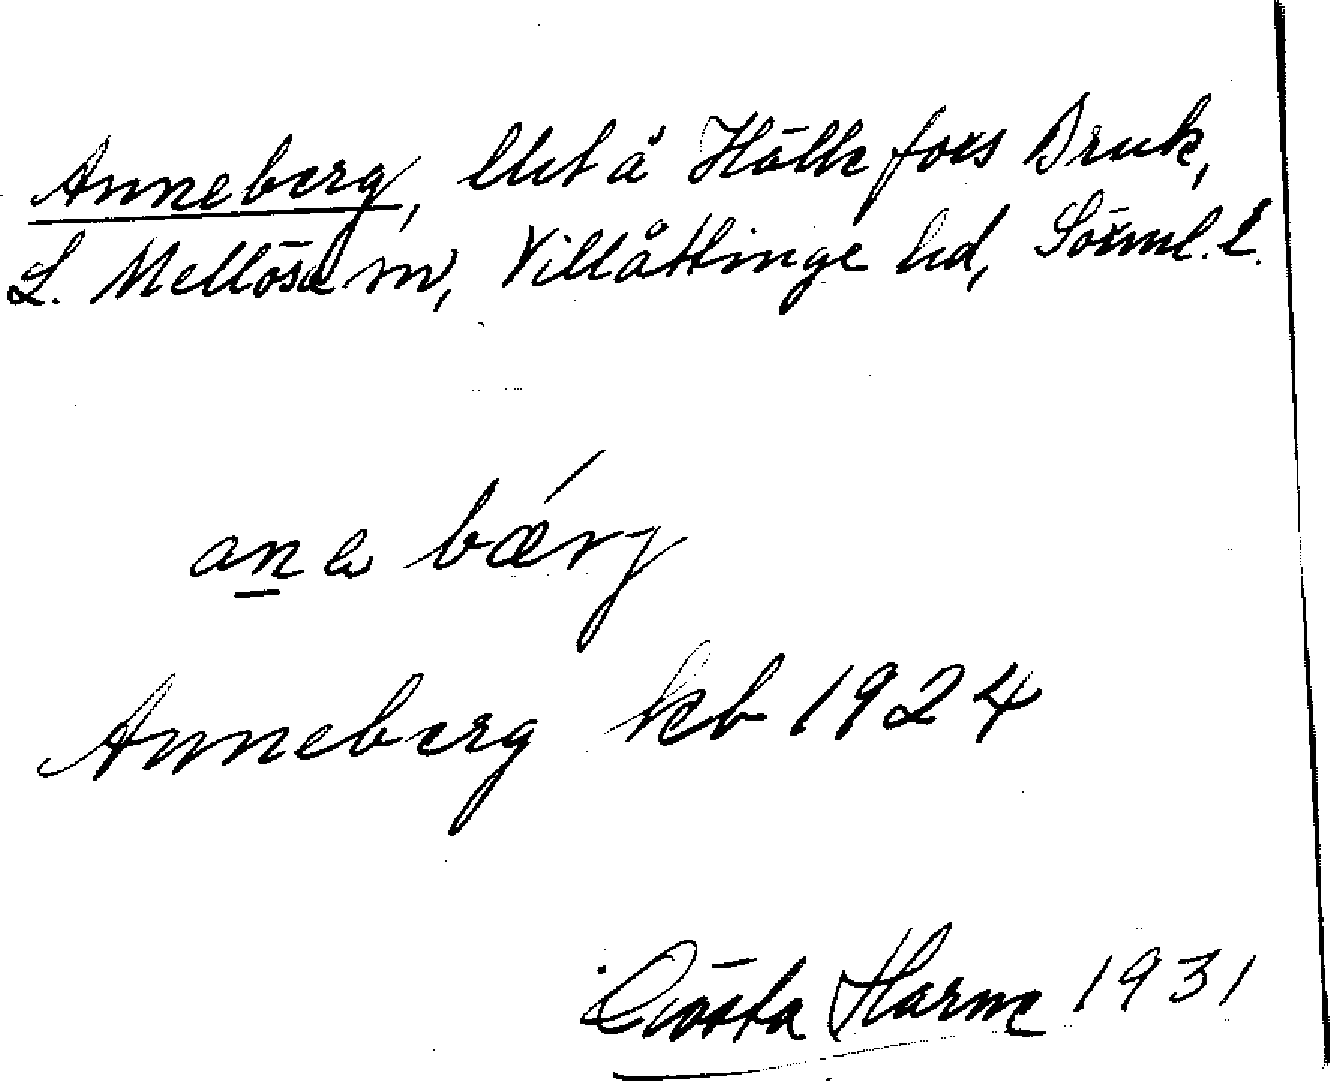 Anneberg, lht å Hälleforsbruk,
L. Mellösa sn, Villåttinge hd, Sörml. L.
anebærj
Anneberg kb 1924
Gösta Harme 1931